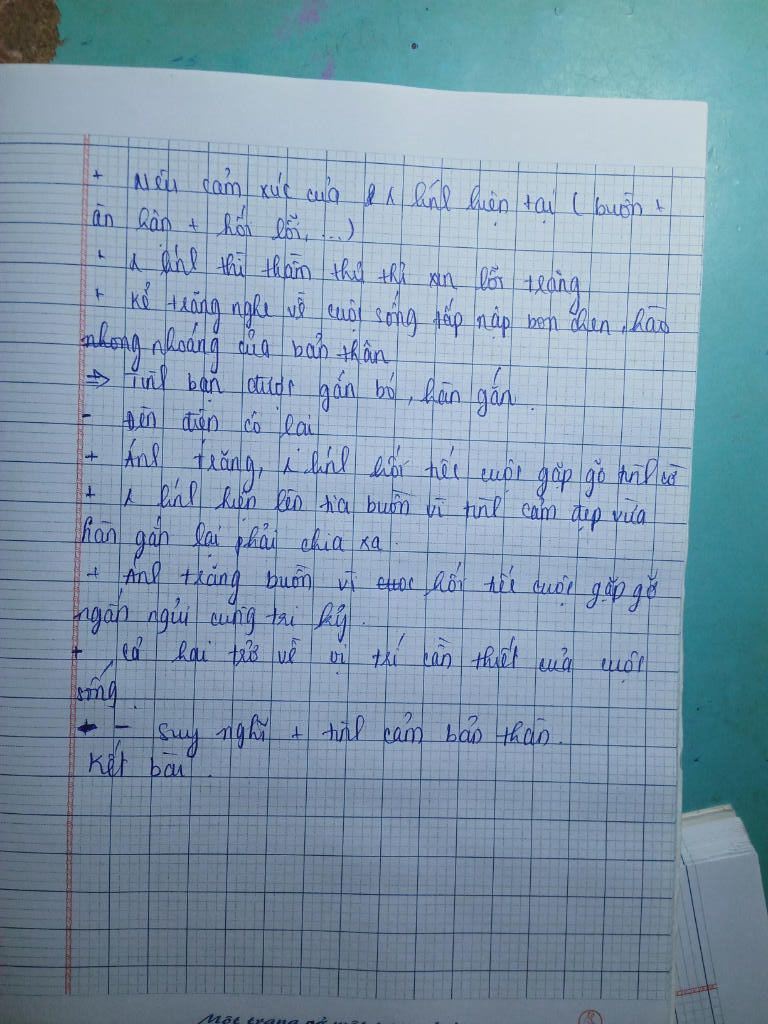 + Nêu cảm xúc của λ lính hiện tại ( buồn +
ăn hận + hối lỗi, ...)
+ λ lính thì thầm thủ thỉ xin lỗi trăng
+ Kể trăng nghe về cuộc sống tấp nập bon chen, hào
nhong nhoáng của bản thân
⇒ Tình bạn được gắn bó, hàn gắn.
- Đèn điện có lại
+ Ánh trăng, λ lính hối tiếc cuộc gặp gỡ tình cờ
+ λ lính hiện lên tia buồn vì tình cảm đẹp vừa
hàn gắn lại phải chia xa.
+ Ánh trăng buồn vì cuộc hối tiếc cuộc gặp gỡ
ngắn ngủi cùng tri kỷ.
+ Cả hai trở về vị trí cần thiết của cuộc
sống.
- Suy nghĩ + tình cảm bản thân.
Kết bài.
Một trang